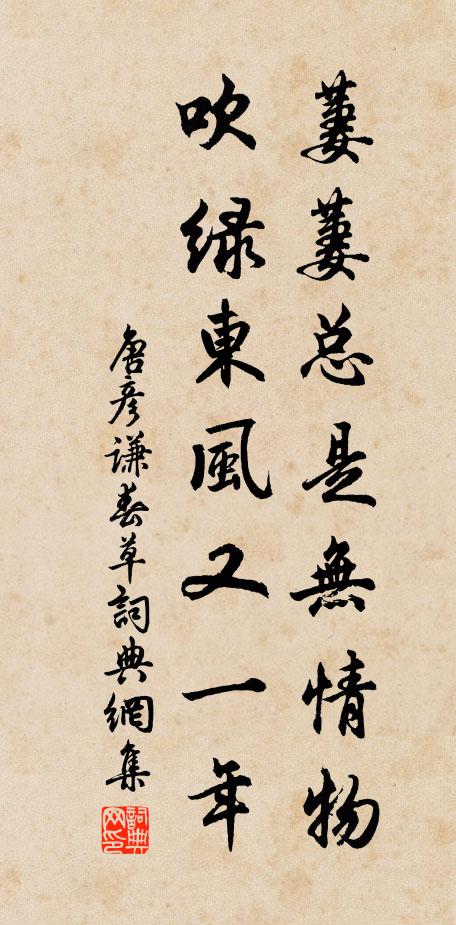 萋萋总是無情物
吹緑東風又一年
唐彦謙春草詞典網集
詞典网印